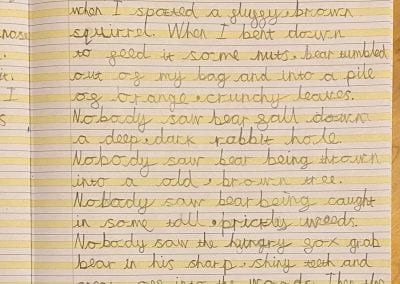 nose
it.
I
s
when I spotted a gluggy, brown
squirrel. When I bent down
to geed it some nuts, bear tumbled
out og my bag and into a pile
og orange, crunchy leaves.
Nobody saw bear gall down
a deep, dark rabbit hole.
Nobody saw bear being thrown
into a old, brown tree.
Nobody saw bear being caught
in some tall, prickly weeds.
Nobody saw the hungry gox grab
bear in his sharp, shiny teeth and
into the woods. Then the